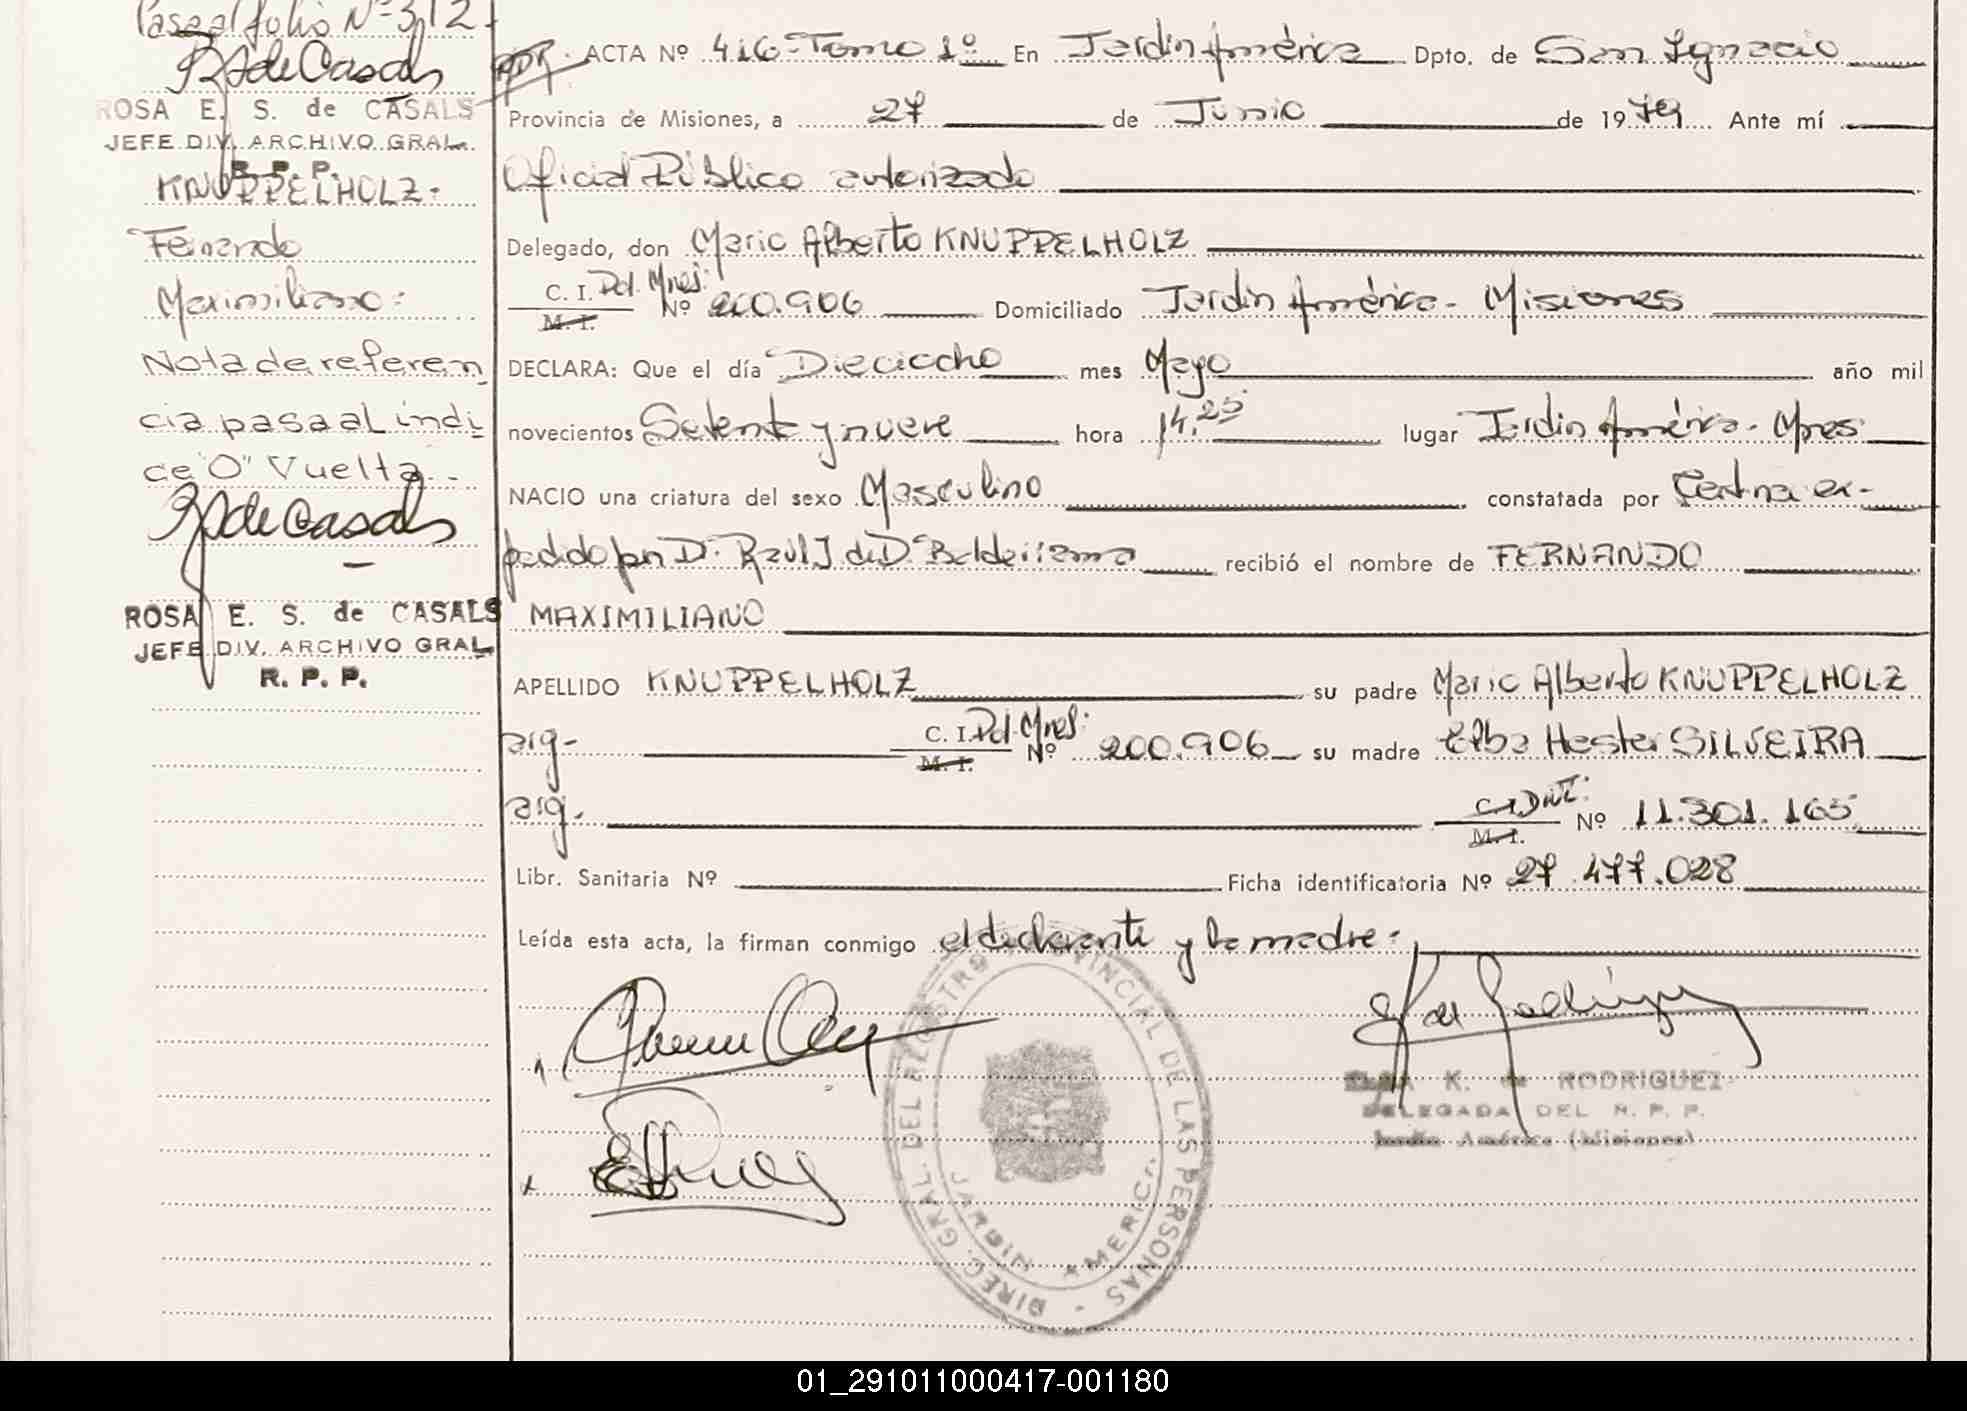 Pasa al folio Nº 312.
ROSA E. S. de CASALS
JEFE DIV. ARCHIVO GRAL.
R. P. P.
KNUPPELHOLZ:
Fernando
Maximiliano:
Nota de referen
cia pasa al indi
ce "O" Vuelta.-
ROSA E. S. de CASALS
JEFE DIV. ARCHIVO GRAL.
R. P. P.
ACTA Nº 416-Tomo 1º En Jardin América Dpto. de San Ignacio
Provincia de Misiones, a 27 de Junio de 1979 Ante mí
Oficial Público autorizado
Delegado, don Mario Alberto KNUPPELHOLZ
C. I. Pol. Mnes: M. I. Nº 200.906 Domiciliado Jardin América - Misiones
DECLARA: Que el día Dieciocho mes Mayo año mil
novecientos Setenta y nueve hora 14,25 lugar Jardin América - Mnes.
NACIO una criatura del sexo Masculino constatada por ex-
pedido por D. Raul J. de D. recibió el nombre de FERNANDO
MAXIMILIANO
APELLIDO KNUPPELHOLZ su padre Mario Alberto KNUPPELHOLZ
arg- C. I. Pol. Mnes: M. I. Nº 200.906 su madre Elba Hester SILVEIRA
arg. C. I. DNI: M. I. Nº 11.301.165
Libr. Sanitaria Nº Ficha identificatoria Nº 27.477.028
Leída esta acta, la firman conmigo el declarante y la madre:
DIREC. GRAL. DEL REGISTRO PROVINCIAL DE LAS PERSONAS -
JARDIN AMERICA
ELSA K. de RODRIGUEZ
DELEGADA DEL R. P. P.
Jardín América (Misiones)
01_291011000417-001180